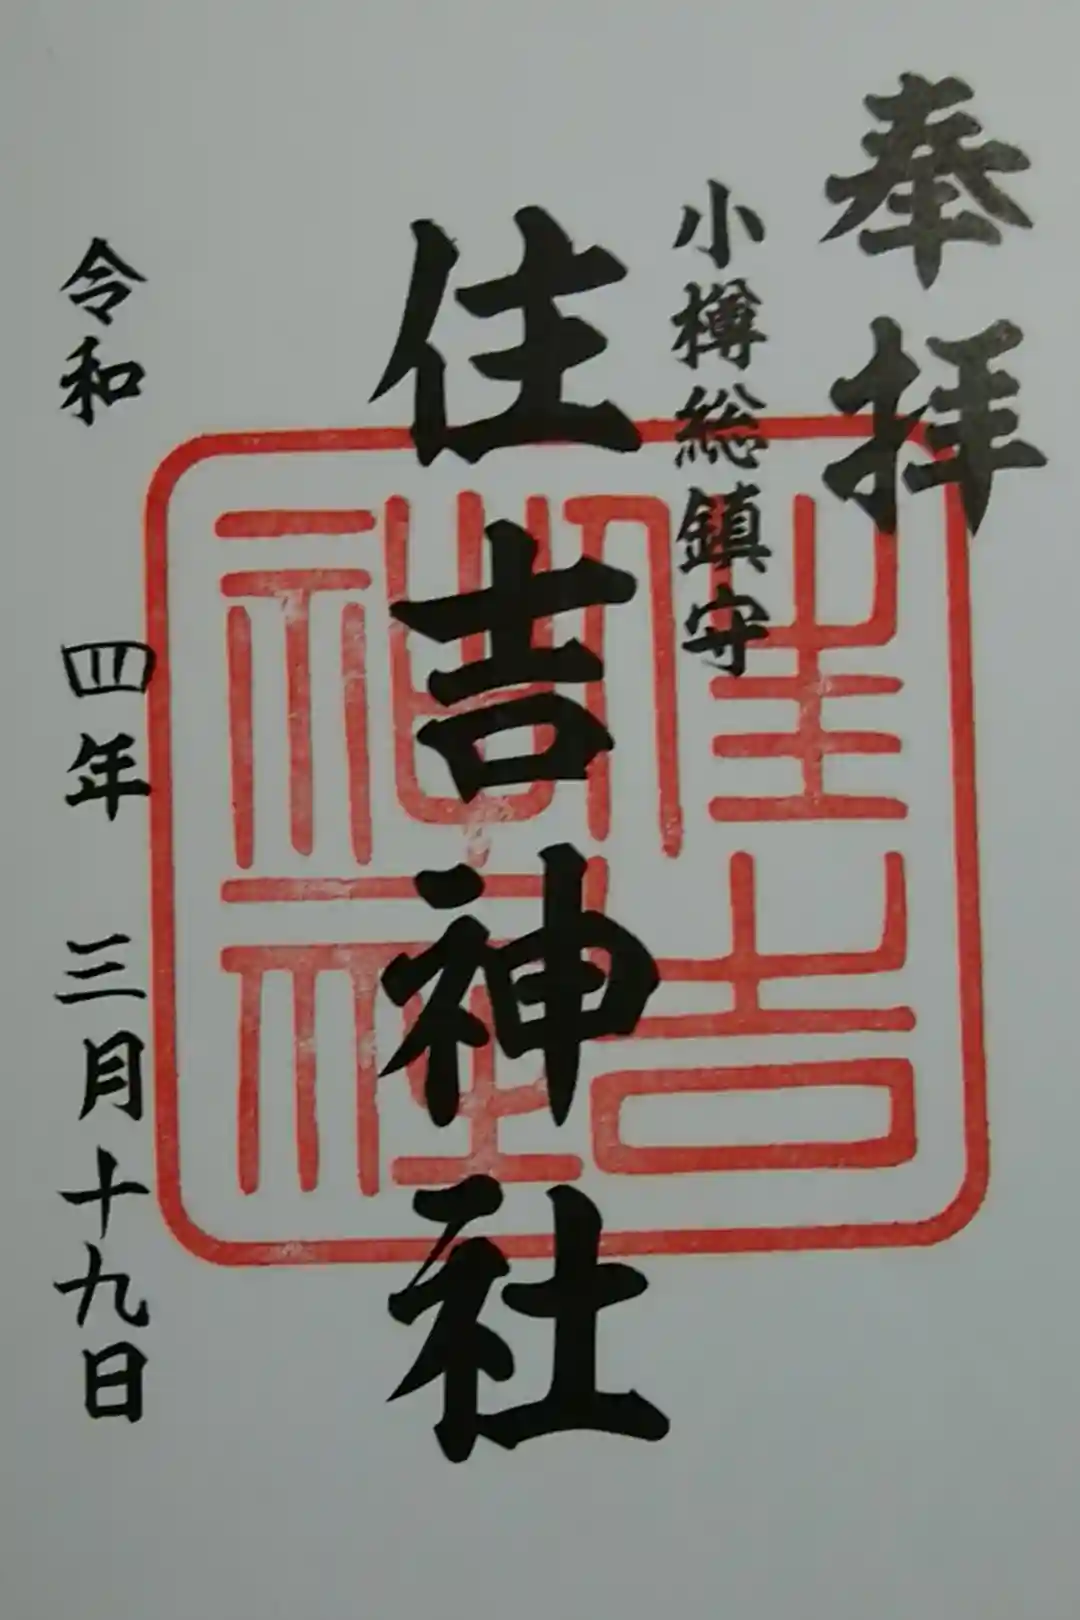 奉拝
小樽総鎮守
住吉神社
住吉神社
令和 四年 三月十九日